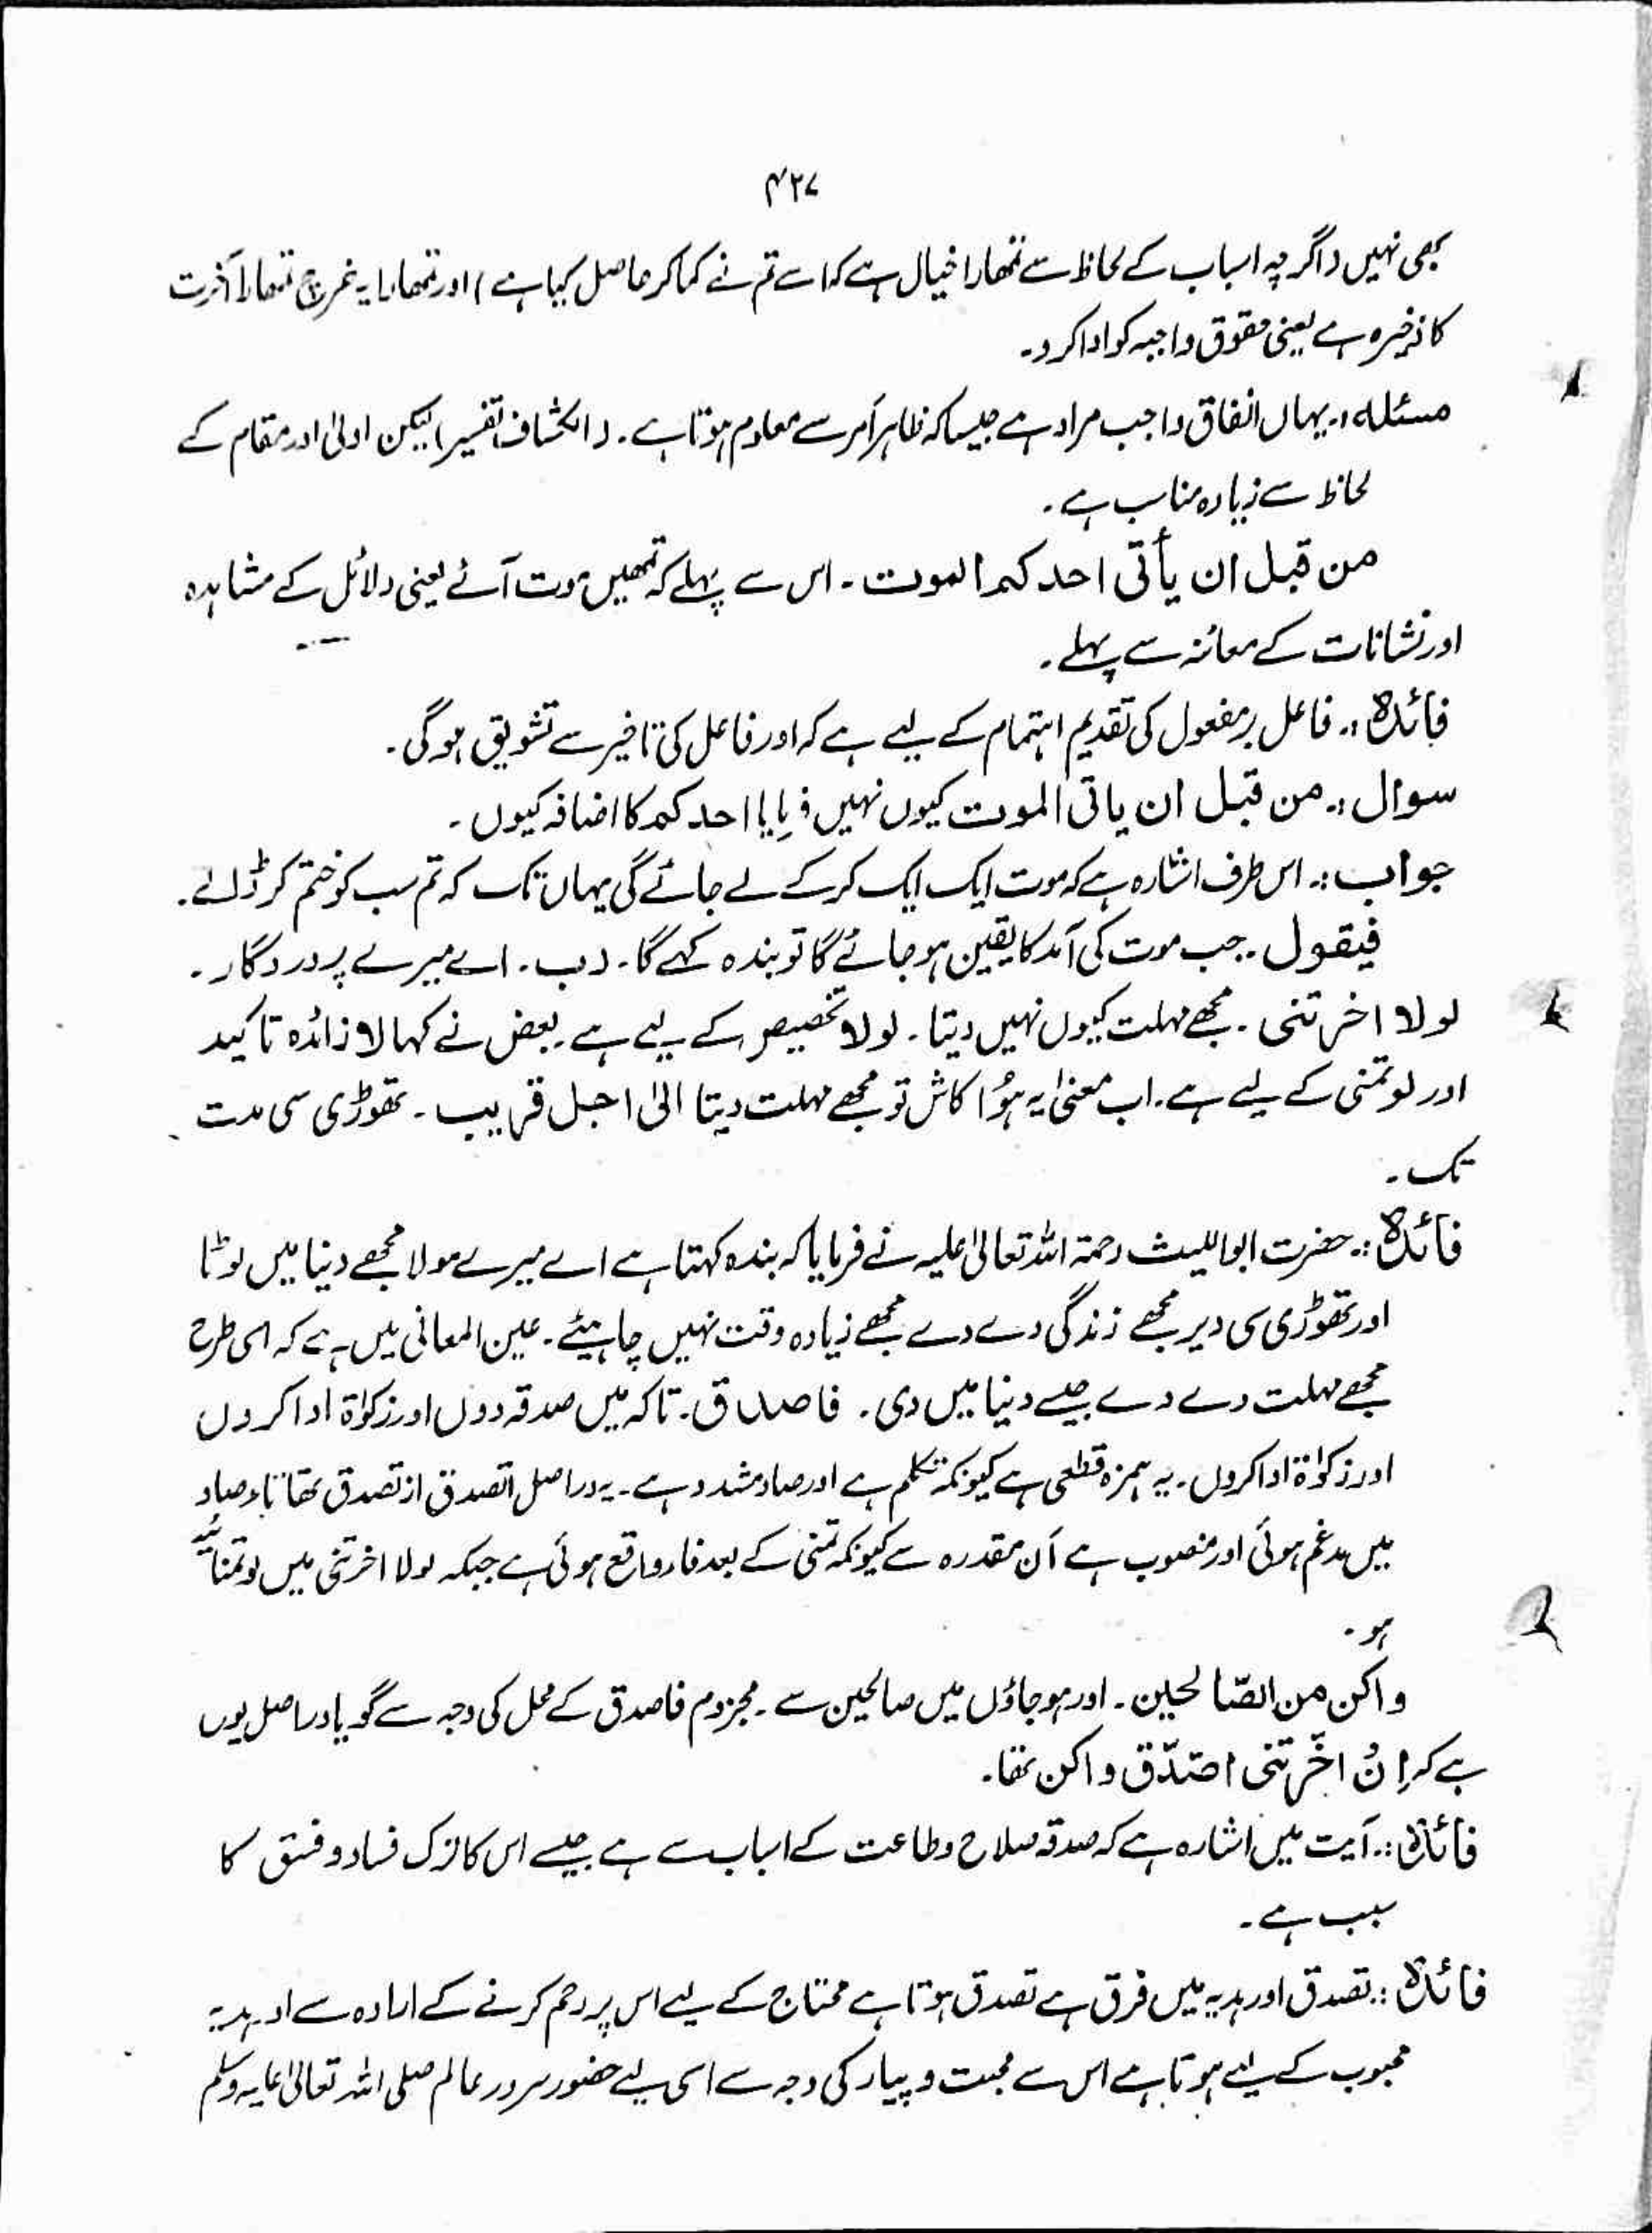 ۴۲۷
بھی نہیں (اگرچہ اسباب کے لحاظ سے تمھارا خیال ہے کہ اسے تم نے کما کر حاصل کیا ہے) اور تمھارا یہ خرچ تمھارا آخرت
کا ذخیرہ ہے یعنی حقوق واجبہ کو ادا کرو۔
مسئلہ :۔ یہاں انفاق واجب مراد ہے جیسا کہ ظاہر اَمر سے معلوم ہوتا ہے۔ (الکشاف تفسیر) لیکن اولیٰ اور مقام کے
لحاظ سے زیادہ مناسب ہے۔
من قبل ان یأتی احدکم الموت۔ اس سے پہلے کہ تمھیں موت آئے یعنی دلائل کے مشاہدہ
اور نشانات کے معائنہ سے پہلے۔
فائدہ :۔ فاعل پر مفعول کی تقدیم اہتمام کے لیے ہے کہ اور فاعل کی تاخیر سے تشویق ہو گی۔
سوال :۔ من قبل ان یاتی الموت کیوں نہیں فرمایا احدکم کا اضافہ کیوں۔
جواب :۔ اس طرف اشارہ ہے کہ موت ایک ایک کر کے لے جائے گی یہاں تک کہ تم سب کو ختم کر ڈالے۔
فیقول۔ جب موت کی آمد کا یقین ہو جائے گا تو بندہ کہے گا۔ رب۔ اے میرے پروردگار۔
لولا اخرتنی۔ مجھے مہلت کیوں نہیں دیتا۔ لولا تخصیص کے لیے ہے۔ بعض نے کہا لا زائدہ تاکید
اور لو تمنی کے لیے ہے۔ اب معنیٰ یہ ہُوا کاش تو مجھے مہلت دیتا الیٰ اجل قریب۔ تھوڑی سی مدت
تک۔
فائدہ :۔ حضرت ابواللیث رحمۃ اللہ تعالیٰ علیہ نے فرمایا کہ بندہ کہتا ہے اے میرے مولا مجھے دنیا میں لوٹا
اور تھوڑی سی دیر مجھے زندگی دے دے مجھے زیادہ وقت نہیں چاہیئے۔ عین المعانی میں ہے کہ اسی طرح
مجھے مہلت دے دے جیسے دنیا میں دی۔ فاصدق۔ تاکہ میں صدقہ دوں اور زکوٰۃ ادا کروں
اور زکوٰۃ ادا کروں۔ یہ ہمزہ قطعی ہے کیونکہ تکلم ہے اور صاد مشدد ہے۔ یہ دراصل اتصدق از تصدق تھا تاء صاد
میں مدغم ہوئی اور منصوب ہے اَن مقدرہ سے کیونکہ تمنی کے بعد فاء واقع ہوئی ہے جبکہ لولا اخرتنی میں لو تمنائیہ
ہو۔
واکن من الصّالحین۔ اور ہو جاؤں میں صالحین سے۔ مجزوم فاصدق کے محل کی وجہ سے گویا دراصل یوں
ہے کہ اِنْ اخّرتنی اصّدّق واکن تھا۔
فائدہ :۔ آیت میں اشارہ ہے کہ صدقہ صلاح و طاعت کے اسباب سے ہے جیسے اس کا ترک فساد و فسق کا
سبب ہے۔
فائدہ :۔ تصدق اور ہدیہ میں فرق ہے تصدق ہوتا ہے محتاج کے لیے اس پر رحم کرنے کے ارادہ سے اور ہدیہ
محبوب کے لیے ہوتا ہے اس سے محبت و پیار کی وجہ سے اسی لیے حضور سرور عالم صلی اللہ تعالیٰ علیہ وسلم